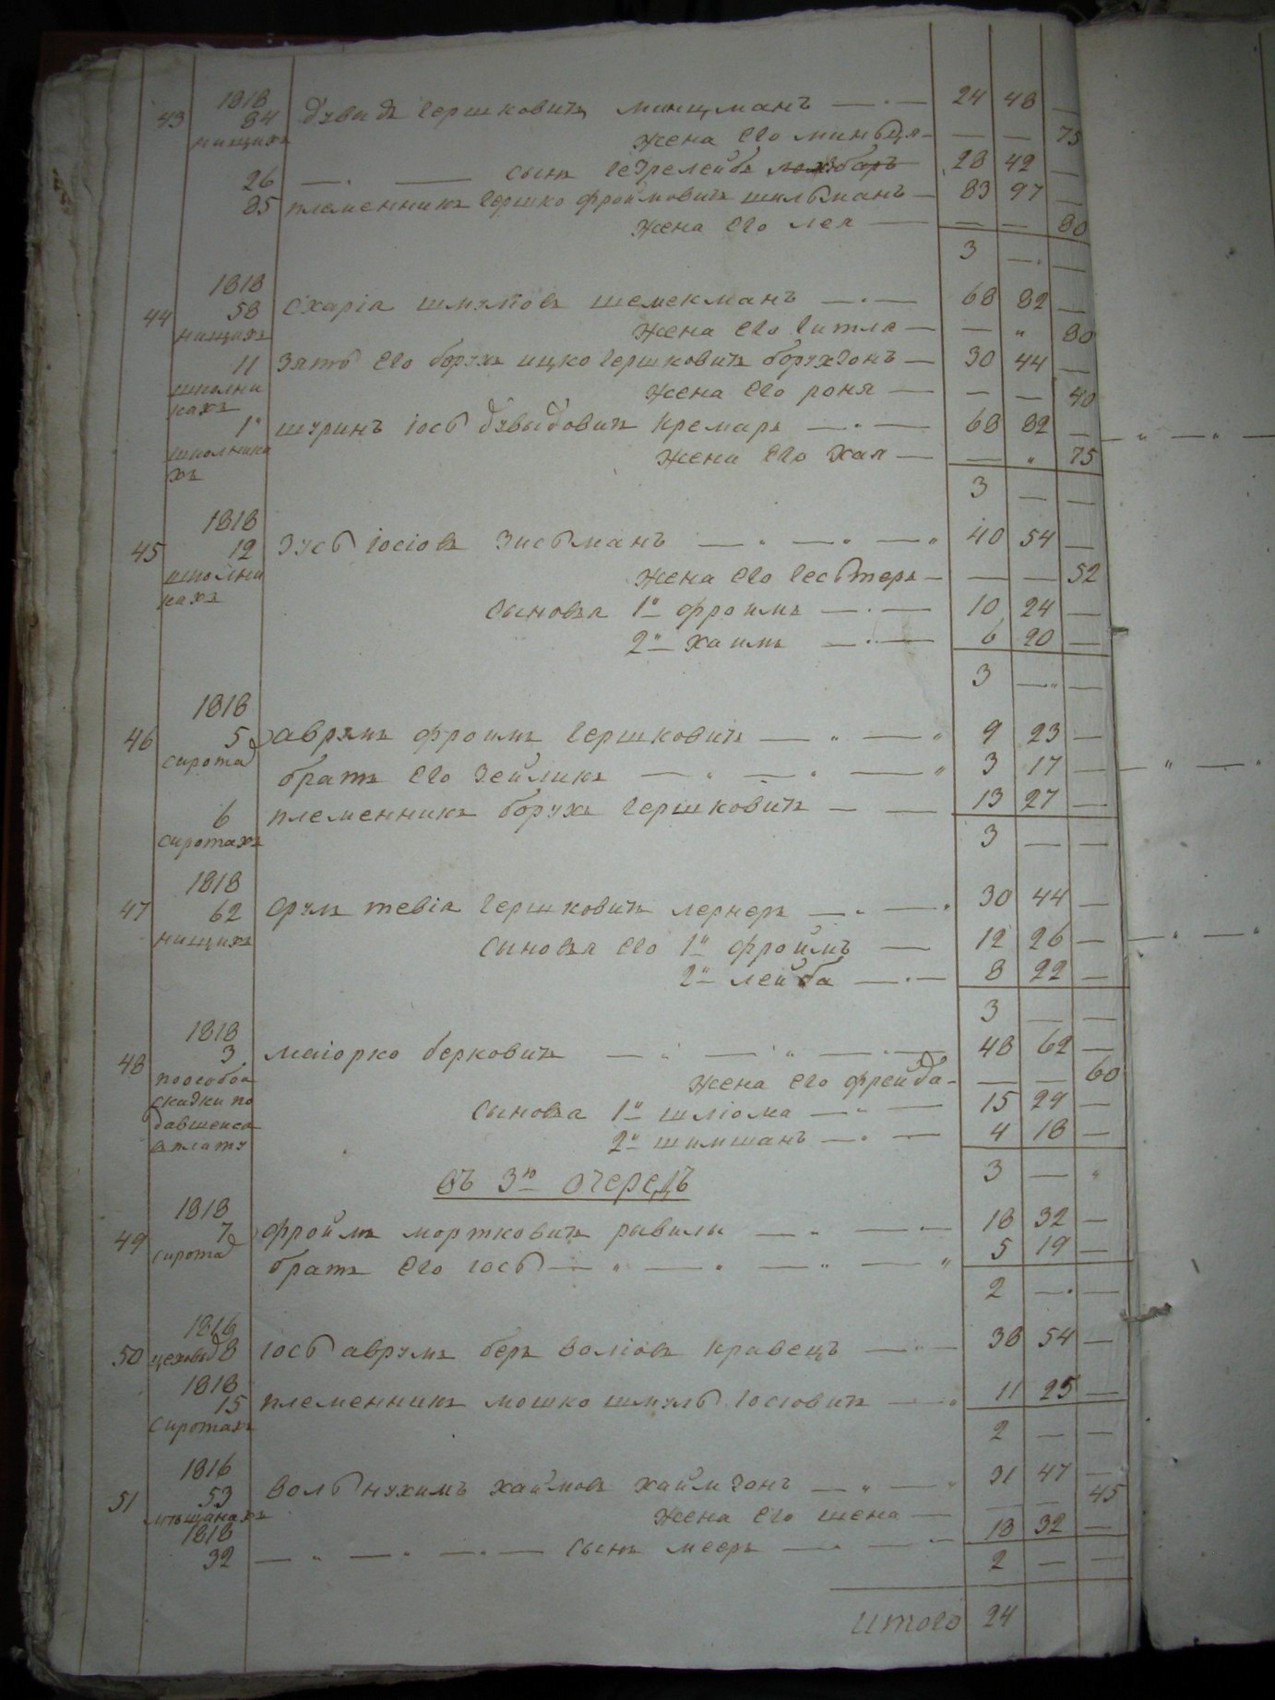 43 1818 84 Дувидъ Гершковичъ минцманъ — 24 48 —
нищихъ жена его миньця — — — 75
26 — — сынъ Гезрелейбъ 28 42 —
85 племенникъ Гершко Фроймовичъ шильманъ — 83 97 —
жена его лея — — — 80
3 — —
1818
44 58 Схарія шмулiовъ шемекманъ — 68 82 —
нищихъ жена его Гитля — — " 80
11 Зять его борухъ ицко Гершковичъ борухзонъ — 30 44 —
школни кахъ жена его роня — — — 40
1 шуринъ іось дувыдовичъ кремаръ — 68 82 —
школника хъ жена его хая — — " 75
3 — —
1818
45 12 Зусь іосіовъ Зисьманъ — 40 54 —
школни кахъ жена его Гесьтеръ — — — 52
сыновья 1й Фроимъ — 10 24 —
2й хаимъ — 6 20 —
3 — —
1818
46 5 аврумъ Фроимъ Гершковичъ — 9 23 —
сирота братъ его Зейликъ — 3 17 —
6 племенникъ борухъ Гершковичъ — 13 27 —
сиротахъ 3 — —
1818
47 62 Срулъ тевія Гершковичъ лернеръ — 30 44 —
нищихъ сыновья его 1й Фроимъ — 12 26 —
2й лейба — 8 22 —
3 — —
1818
48 3 маіорко берковичъ — 48 62 —
по особой жена его Фрейда — — — 60
скадки по сыновья 1й шліома — 15 29 —
давшейся 2й шимшанъ — 4 18 —
въ плату
въ 3ю очередъ 3 — "
1818
49 7 Фроимъ мортковичъ рывилы — 18 32 —
сирота братъ его іось — 5 19 —
2 — —
1816
50 цеховыя 8 іось аврумъ беръ воліовъ кравецъ — 38 54 —
1818
15 племенникъ мошко шмуль іосіовичъ — 11 25 —
сиротахъ 2 — —
1816
51 53 воль нухимъ хаимовъ хаймзонъ — 31 47 —
мещанахъ жена его шена — — — 45
1818 18 32 —
32 — сынъ мееръ — 2 — —
итого 24